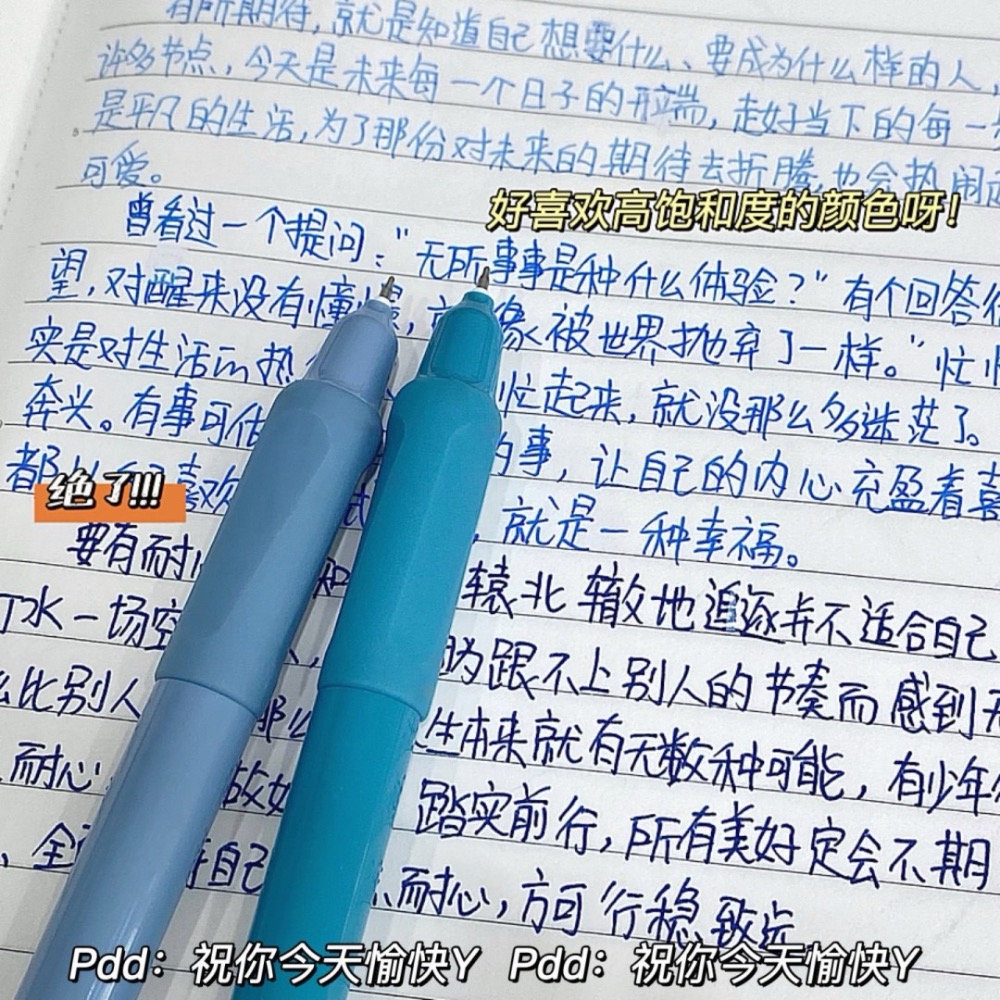 有所期待，就是知道自己想要什么、要成为什么样的人，
许多节点，今天是未来每一个日子的开端，走好当下的每一
是平凡的生活，为了那份对未来的期待去折腾，也会热闹
可爱。
好喜欢高饱和度的颜色呀!
曾看过一个提问："无所事事是种什么体验？"有个回答
望，对醒来没有憧憬，就像被世界抛弃了一样。"忙
实是对生活的热 忙起来，就没那么多迷茫了。
奔头。有事可 的事，让自己的内心充盈着喜
都 喜欢 就是一种幸福。
绝了!!!
要有耐 辕北辙地追逐并不适合自己
水一场空 为跟不上别人的节奏而感到
比别人 那么 生本来就有无数种可能，有少年
耐心 故 踏实前行，所有美好定会不期
全 自己 耐心，方可行稳致远
Pdd：祝你今天愉快Y Pdd：祝你今天愉快Y